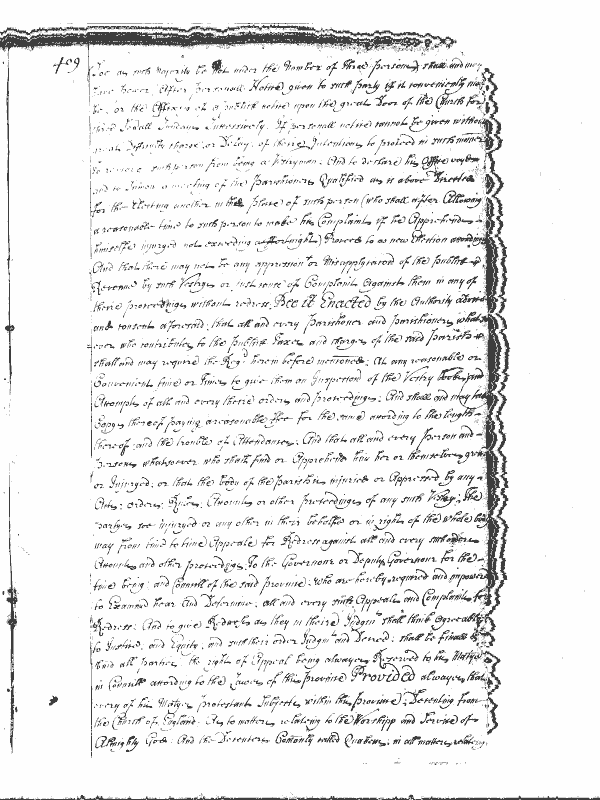 409
(soe as such Majority be not under the Number of three persons) shall and may
have power After personall Notice given to such party if it conveniently may
be, or the Affixing of a publick notice upon the great Door of the Church for
three Sundays Successively, If personall notice cannot be given without
great Difficulty charge or Delay, of theire Intentions to proceed in such manner
to remove such person from being a Vestryman And to declare his Office voyde
and to Summon a meeting of the Parishioners Qualified as is above Directed
for the Electing another in the place of such person (who shall after Allowing
a reasonable time to such person to make his Complaint if he Apprehends
himselfe injured not exceeding a fortnight) Proceed to a new Election accordingly
And that there may not be any oppression or Missapplycacon of the publick
Revenue by such Vestrys or just cause of Complaint Against them in any of
theire proceedings without redress, Bee it Enacted by the Authority advice
and consent aforesaid, that all and every Parishoner and Parishioners whatso
ever who contributes to the publick Taxes and charges of the said Parish
shall and may require the Regr herein before mencioned; At any reasonable or
Convenient time or times to give them an Inspeccon of the Vestry books and
Accompts of all and every theire orders and proceedings; And shall and may take
Copys thereof paying a reasonable Fee for the same according to the length
thereof and the trouble of Attendance; And that all and every person and
persons whatsoever who shall find or Apprehend him her or themselves grieved
or Injured; or that the body of the Parish is injured or Oppressed by any
Acts; orders; Rules; Accounts or other proceedings of any such Vestry; The
partyes soe injured or any other in their behalfe or in right of the whole body
may from time to time Appeale for Redress against all and every such orders
Accounts and other proceedings To the Governour or Deputy Governour for the
time being and Councill of the said Province; who are hereby required and impowered
to Examine hear And Determine; all and every such Appeals and Complaints to
Redress; And to give Redress as they in theire Judgmt shall think agreeable
to Justice, and Equity; and such their order Judgmt and Decree; shall be finall to
bind all Parties the right of Appeal being always Reserved to his Majtye
in Councill according to the Lawes of this province Provided always that
every of his Majtys protestant Subjects within this Province; Desenting from
the Church of England. As to matters relateing to the Worshipp and Service of
Almighty God: And the Desenters Commonly called Quakers; in all matters relateing